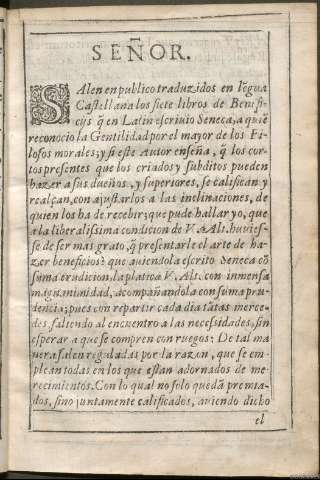 SEÑOR.
SAlen en publico traduzidos en lẽgua
Castellana los siete libros de Benifi-
cijs q̃ en Latin escriuio Seneca, a quiẽ
reconocio la Gentilidad por el mayor de los Fi-
losofos morales; y si este Autor enseña, q̃ los cor-
tos presentes que los criados y subditos pueden
hazer a sus dueños, y superiores, se califican y
realçan, con ajustarlos a las inclinaciones, de
quien los ha de recebir; que pude hallar yo, que
a la liberalissima condicion de V. Alt. huuies-
se de ser mas grato, q̃ presentarle el arte de ha-
zer beneficios? que auiendola escrito Seneca cõ
suma erudicion, la platica V. Alt. con inmensa
magnanimidad, acompañandola con suma pru-
dencia; pues con repartir cada dia tãtas merce-
des, saliendo al encuentro a las necessidades, sin
esperar a que se compren con ruegos: De tal ma
nera salen reguladas por la razon, que se em-
plean todas en los que estan adornados de me-
recimientos. Con lo qual no solo quedã premia-
dos, sino juntamente calificados, auiendo dicho
el